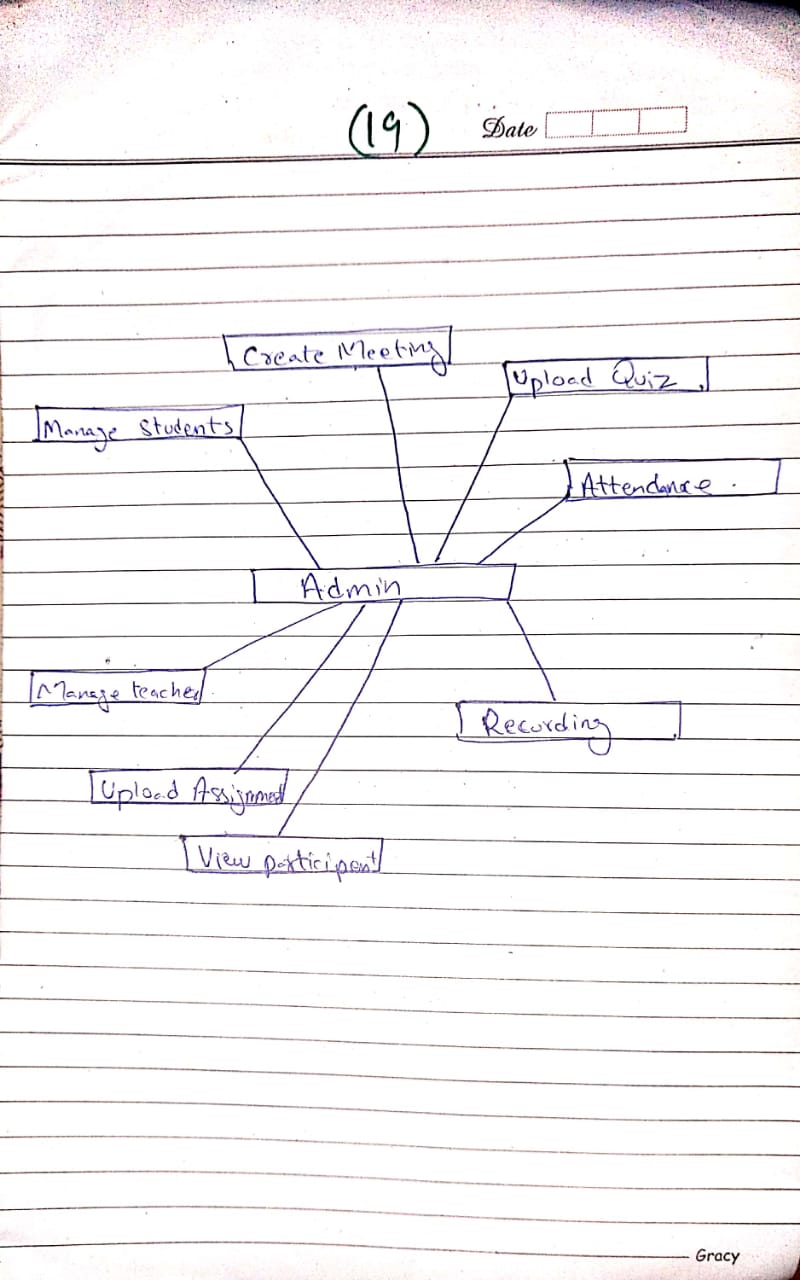 (19)
Date
Create Meeting
Upload Quiz.
Manage Students
Attendance.
Admin
Manage teacher
Recording
Upload Assignmed
View participent
Gracy